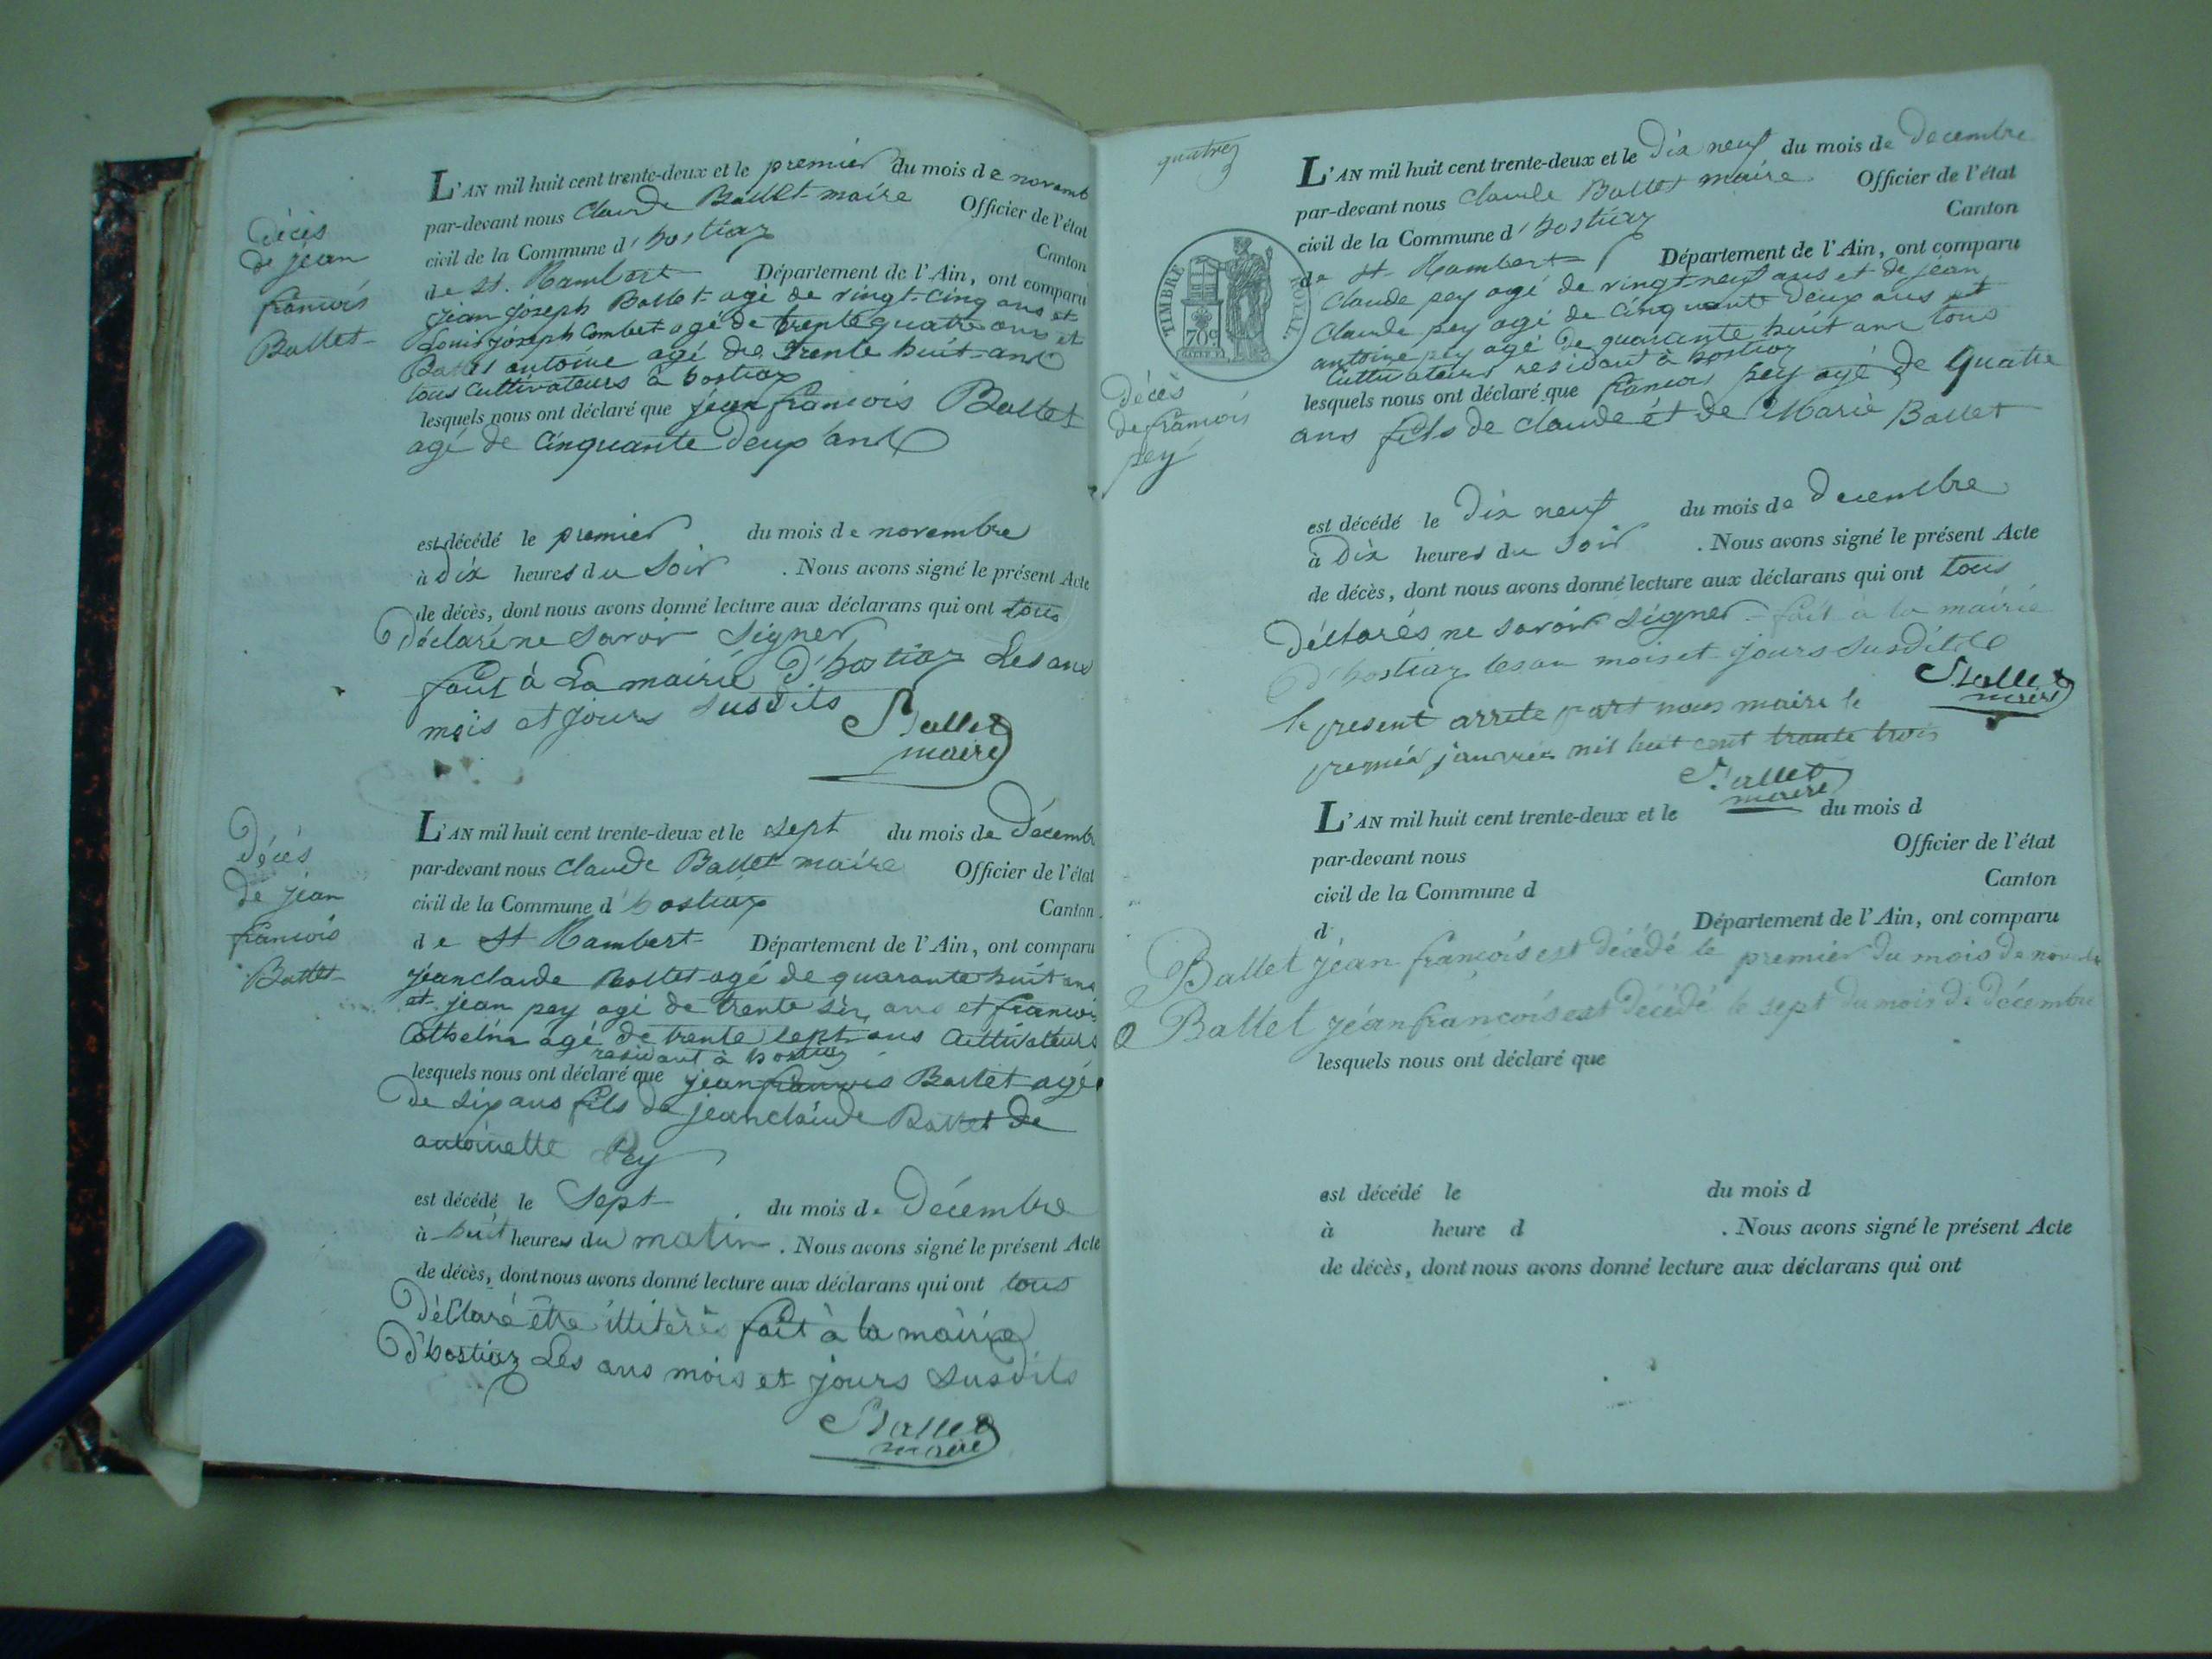 décès
de jean
francois
Ballet
L'AN mil huit cent trente-deux et le premier du mois de novemb
par-devant nous Claude Ballet maire Officier de l'état
civil de la Commune d'hostiaz Canton
de st. Rambert Département de l'Ain, ont comparu
jean joseph Ballet agé de vingt-cinq ans et
Louis joseph Combet agé de trente quatre ans et
Ballet antoine agé de trente huit ans
tous cultivateurs à hostiaz
lesquels nous ont déclaré que jean francois Ballet
agé de Cinquante deux ans
est décédé le premier du mois de novembre
à dix heures du Soir . Nous avons signé le présent Acte
de décès, dont nous avons donné lecture aux déclarans qui ont tous
déclaré ne savoir signer
fait à La mairie d'hostiaz Les ans
mois et jours susdits
Ballet
maire
Décès
de jean
francois
Ballet
L'AN mil huit cent trente-deux et le sept du mois de décemb
par-devant nous Claude Ballet maire Officier de l'état
civil de la Commune d'hostiaz Canton
de St Rambert Département de l'Ain, ont comparu
jean claude Ballet agé de quarante huit ans
et jean pey agé de trente six ans et francois
agé de trente sept ans Cultivateurs
residant à hostiaz
lesquels nous ont déclaré que jean francois Ballet agé
de six ans fils de jean claude Ballet de
antoinette Pey
est décédé le Sept du mois de Décembre
à huit heures du matin . Nous avons signé le présent Acte
de décès, dont nous avons donné lecture aux déclarans qui ont tous
déclaré être illitérés fait à la mairie
d'hostiaz Les ans mois et jours susdits
Ballet
maire
quatre
TIMBRE ROYAL
70c
décès
de francois
pey
L'AN mil huit cent trente-deux et le Dix neuf du mois de Decembre
par-devant nous Claude Ballet maire Officier de l'état
civil de la Commune d'hostiaz Canton
de St Rambert Département de l'Ain, ont comparu
Claude pey agé de vingt-neuf ans et de jean
Claude pey agé de cinquante deux ans et
antoine pey agé de quarante huit ans tous
Cultivateurs residant à hostiaz
lesquels nous ont déclaré que francois pey agé de quatre
ans fils de claude et de Marie Ballet
est décédé le Dix neuf du mois de Decembre
à Dix heures du Soir . Nous avons signé le présent Acte
de décès, dont nous avons donné lecture aux déclarans qui ont tous
déclarés ne savoir signer fait à la mairie
d'hostiaz les an mois et jours susdits
Ballet
maire
le present arreté part nous maire le
premier janvier mil huit cent trante trois
Ballet
maire
L'AN mil huit cent trente-deux et le du mois d
par-devant nous Officier de l'état
civil de la Commune d Canton
d Département de l'Ain, ont comparu
Ballet jean françois est décédé le premier du mois de novembre
Ballet jean françois est décédé le sept du mois de décembre
lesquels nous ont déclaré que
est décédé le du mois d
à heure d . Nous avons signé le présent Acte
de décès, dont nous avons donné lecture aux déclarans qui ont